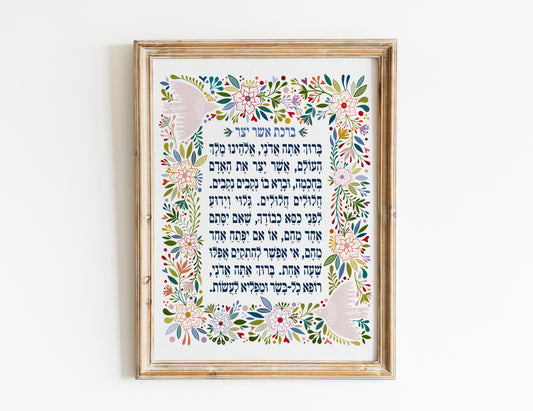 ברכת אשר יצר
בָּרוּךְ אַתָּה אֲדֹנָי, אֱלֹהֵינוּ מֶלֶךְ
הָעוֹלָם, אֲשֶׁר יָצַר אֶת הָאָדָם
בְּחָכְמָה, וּבָרָא בוֹ נְקָבִים נְקָבִים.
חֲלוּלִים חֲלוּלִים. גָּלוּי וְיָדוּעַ
לִפְנֵי כִסֵּא כְבוֹדֶךָ, שֶׁאִם יִסָּתֵם
אֶחָד מֵהֶם, אוֹ אִם יִפָּתֵחַ אֶחָד
מֵהֶם, אִי אֶפְשָׁר לְהִתְקַיֵּם אֲפִלּוּ
שָׁעָה אֶחָת. בָּרוּךְ אַתָּה אֲדֹנָי,
רוֹפֵא כָל-בָּשָׂר וּמַפְלִיא לַעֲשׂוֹת.